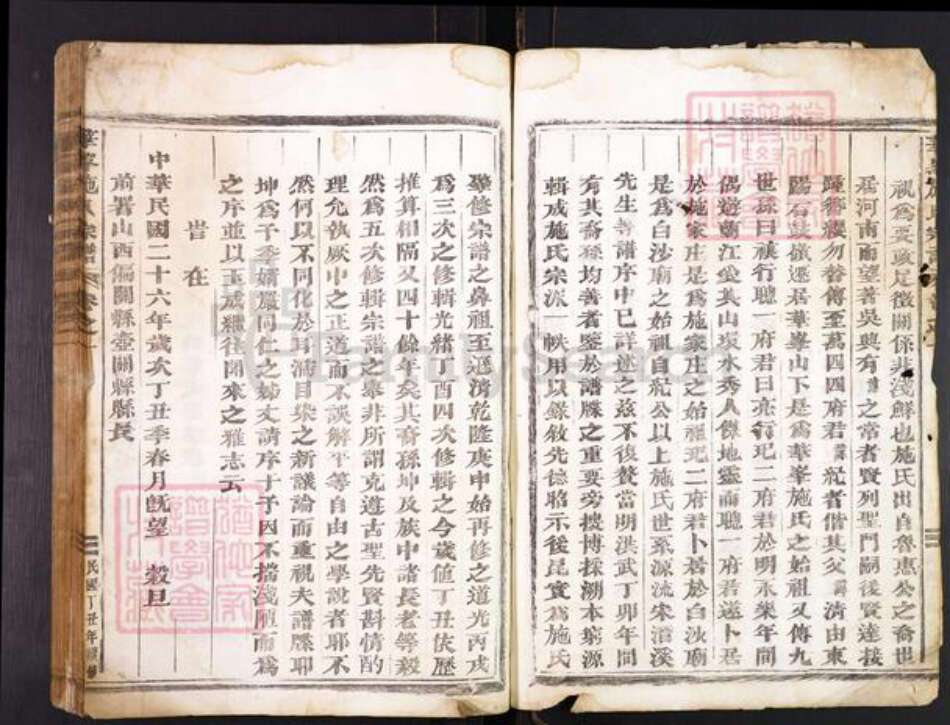 視為要政足徵關係非淺鮮也施氏出自魯惠公之裔世
居河南而望著吳興有之常者賢列聖門嗣後賢達接
踵簪纓勿替傳至萬四四府君諱紀者偕其父諱清由東
陽石鼓嶺遷居華峯山下是為華峯施氏之始祖又傳九
世孫曰禎行聰一府君曰亮行玘二府君於明永樂年間
偶遊蘭江愛其山環水秀人傑地靈而聰一府君遂卜居
於施家庄是為施家庄之始祖玘二府君卜居於白沙廟
是為白沙廟之始祖自紀公以上施氏世系源流宋濂溪
先生等譜序中已詳述之茲不復贅當明洪武丁卯年間
有其裔孫均善者鑒於譜牒之重要旁搜博採溯本窮源
輯成施氏宗派一帙用以錄敘先德昭示後昆實為施氏
舉修宗譜之鼻祖至遜清乾隆庚申始再修之道光丙戌
為三次之修輯光緒丁酉四次修輯之今歲值丁丑依歷
推算相隔又四十餘年矣其裔孫坤及族中諸長老等毅
然為五次修輯宗譜之舉非所謂克遵古聖先賢斟情酌
理允執厥中之正道而不誤解平等自由之學說者耶不
然何以不同化於耳濡目染之新議論而重視夫譜牒耶
坤為予季婿屬同仁之姊丈請序于予因不揣淺陋而為
之序並以玉成繼往開來之雅志云
旹在
中華民國二十六年歲次丁丑季春月既望 穀旦
前署山西偏關縣壺關縣縣長
華峯施氏宗譜 卷之一
民國丁丑年重修